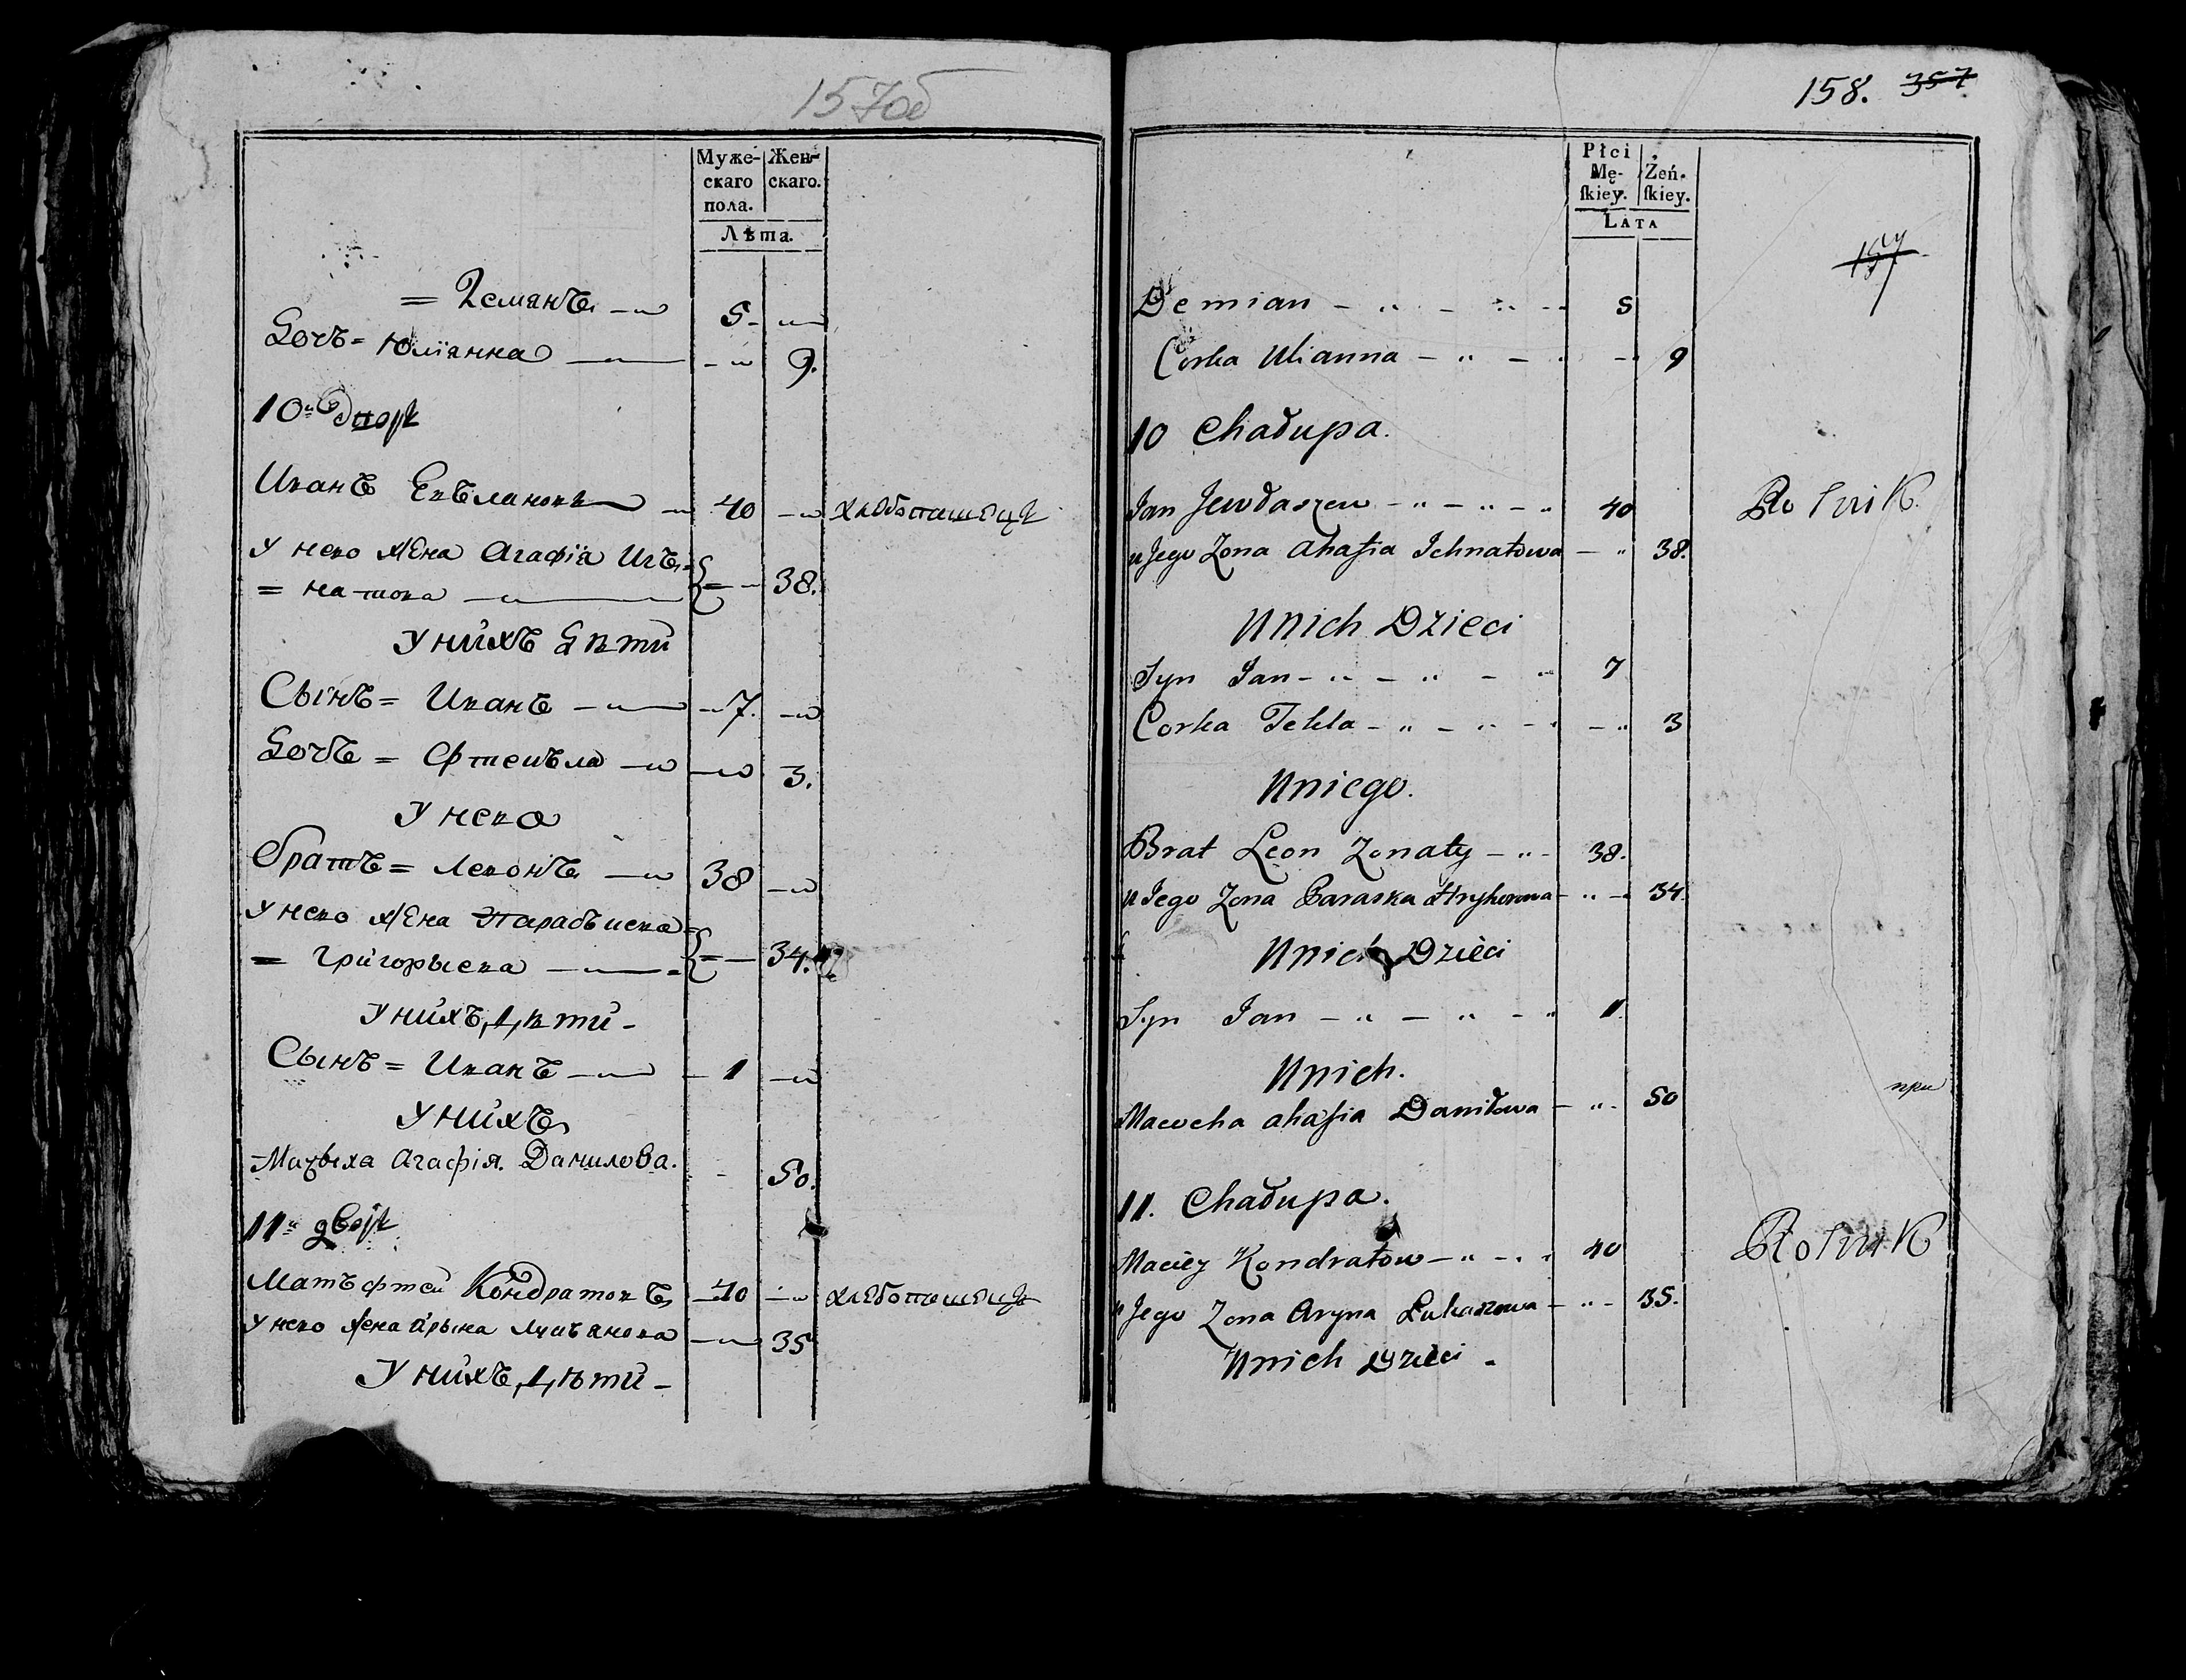 157об
Муже-
скаго
пола.
Жен-
скаго.
Лѣта.
= Демянъ 5
Дочь = Юлїанна 9.
10й дворъ
Иванъ 40 хлебопашецъ
У него жена Агафiя Игъ=
= натова 38.
У нихъ дѣти
Сынъ = Иванъ 7.
Дочь = 3.
У него
братъ = Левонъ 38
У него жена
= Григорьева 34.
У нихъ дѣти
Сынъ = Иванъ 1
У нихъ
Мачыха Агафiя Данилова. 50.
11й дворъ
Матъфтей Кондратовъ 40 хлебопашецъ
У него жена Арына 35
У нихъ дѣти
158. 357
Płci
Mę-
ſkiey.
Żeń-
ſkiey.
LATA
157
Demian 5
Corka Ulianna 9
10 Chałupa.
Jan Jewdaszew 40 Rolnik.
u Jego Zona Ahafia Ichnatowa 38.
U nich Dzieci
Syn Jan 7
Corka Tekla 3
U niego.
Brat Leon Zonaty 38.
u Jego Zona Paraska Hryhorowa 34.
U nich Dzieci
Syn Jan 1
U nich.
Macocha ahafia Daniłowa 50
при
11. Chałupa.
Maciey Kondratow 40 Rolnik
u Jego Zona Aryna Lukaszowa 35.
U nich Dzieci